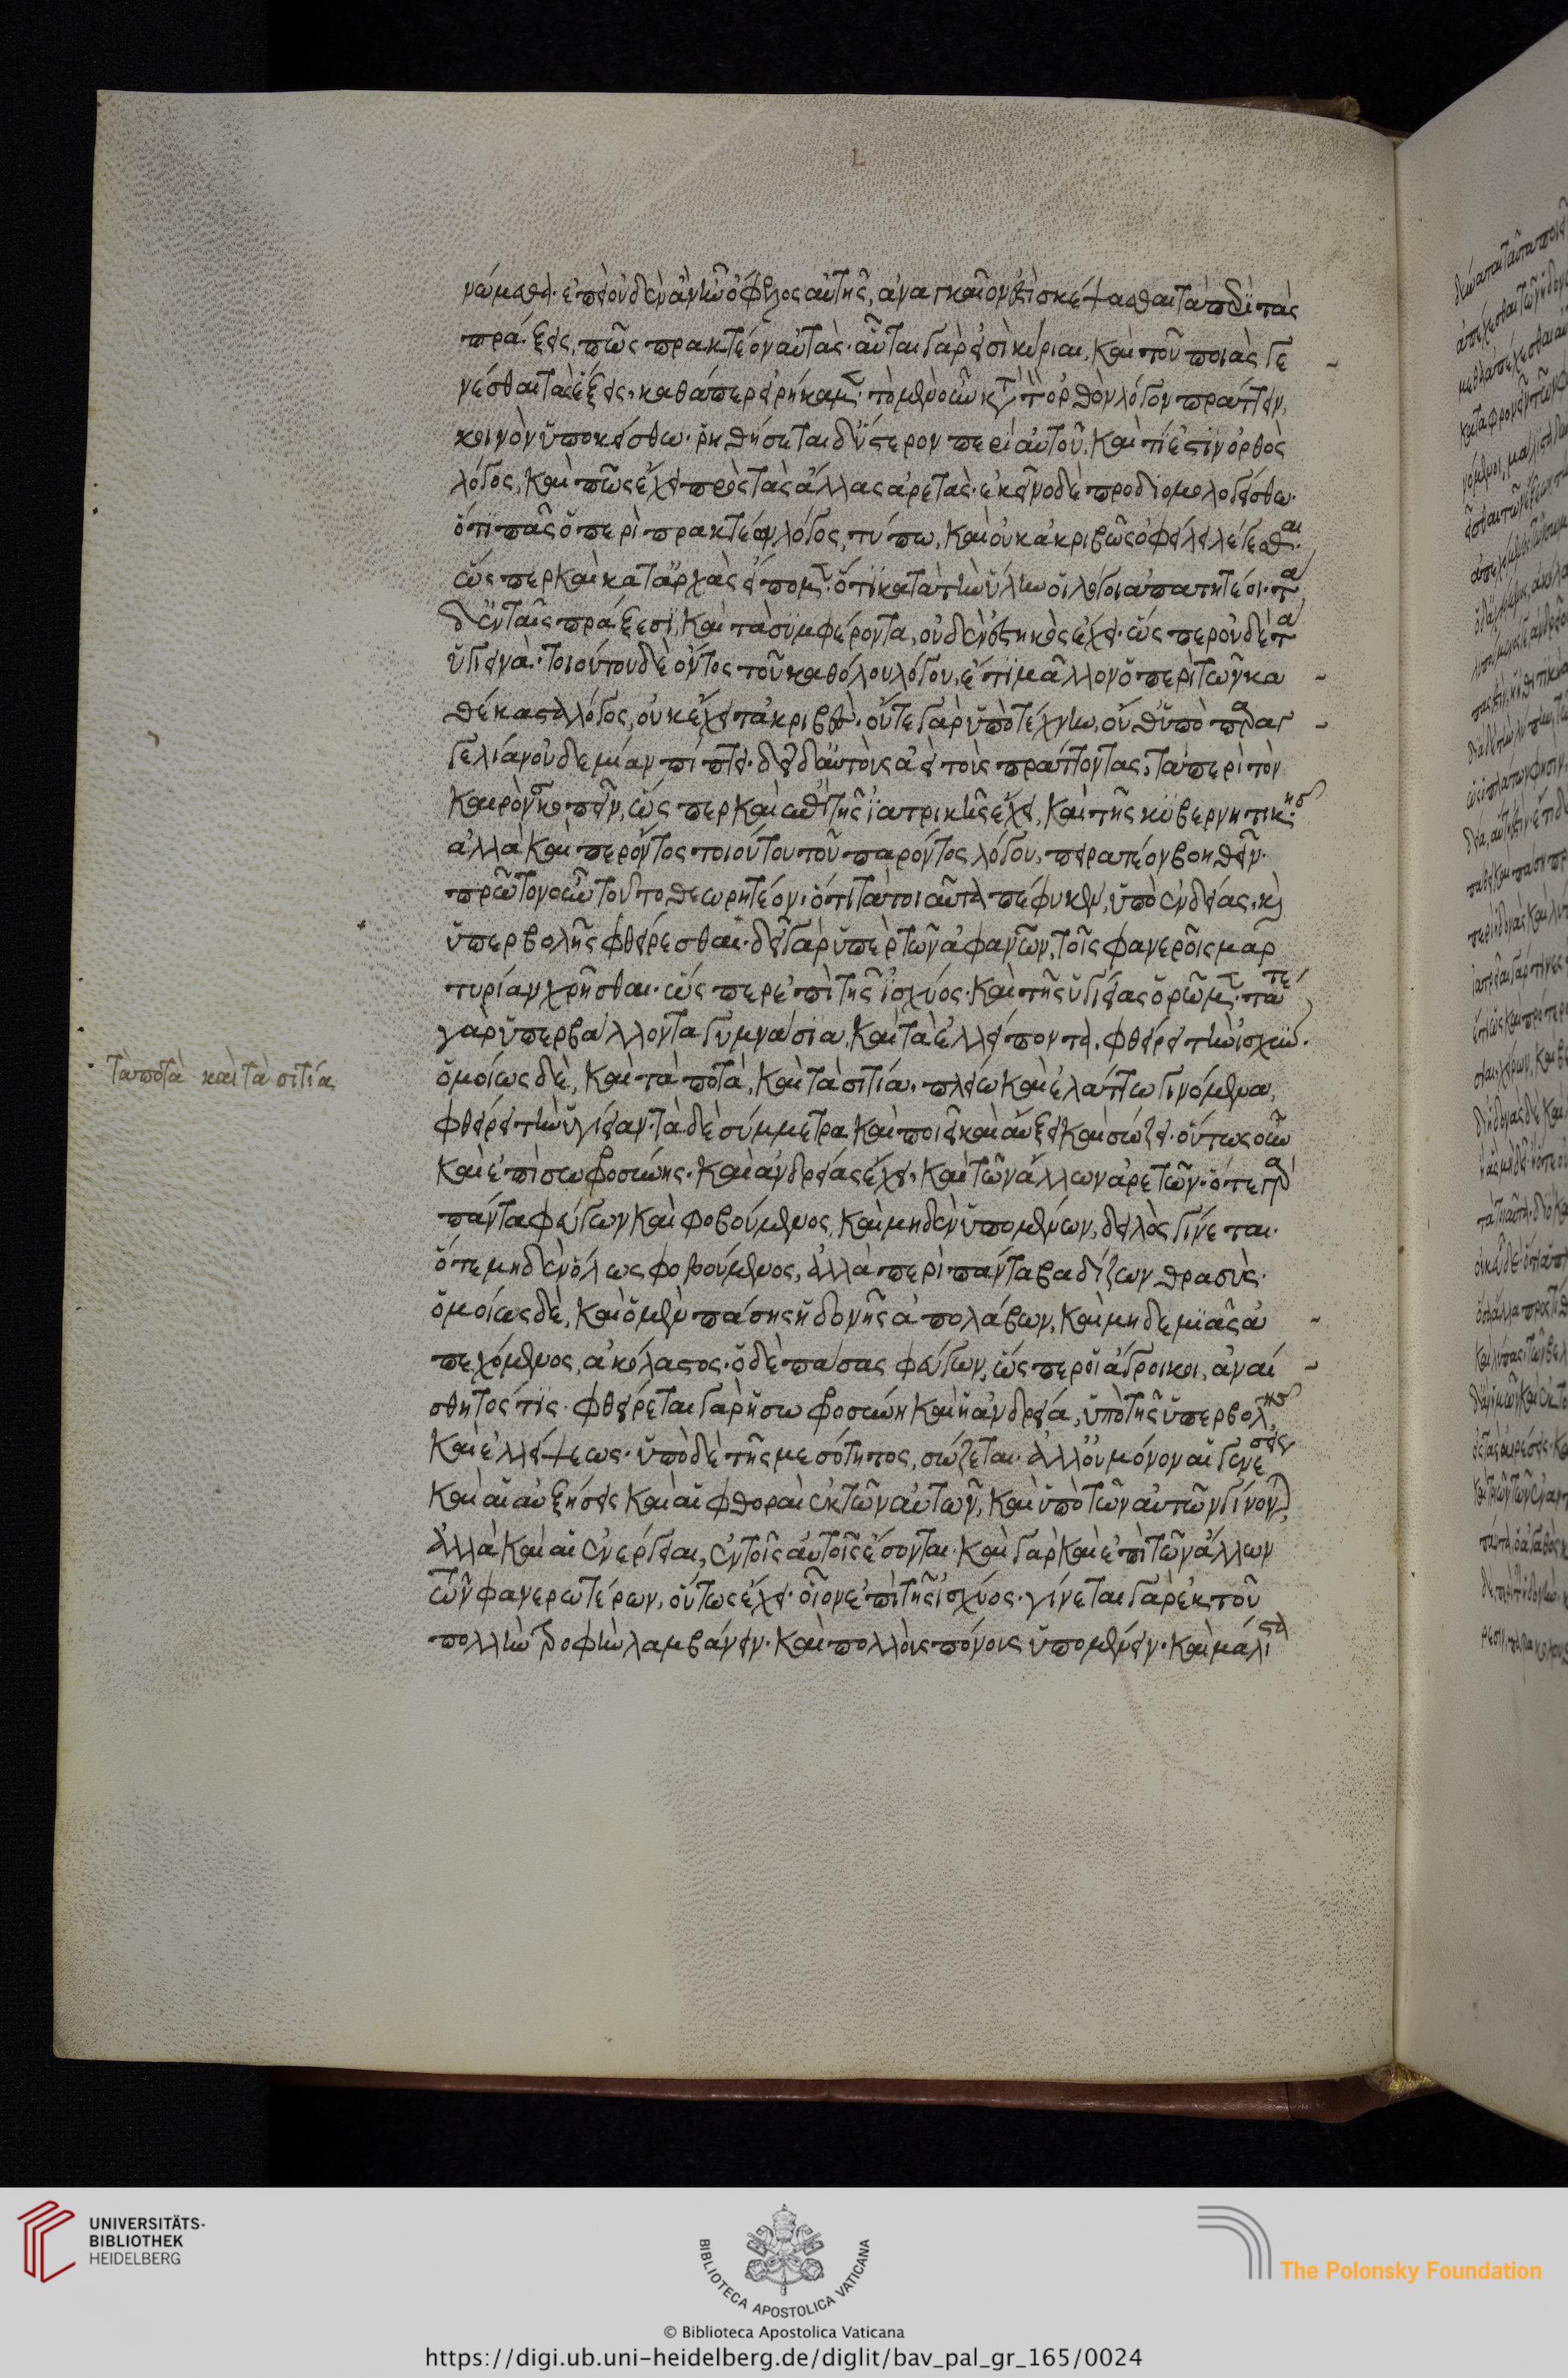 L
νώμεθα· ἐπεὶ οὐδὲν ἂν ἦν ὄφελος αὐτῆς, ἀναγκαῖον ἐπισκέψασθαι τὰ περὶ τὰς
πράξεις, πῶς πρακτέον αὐτάς· αὗται γάρ εἰσι κύριαι, καὶ τοῦ ποιὰς γε
νέσθαι τὰς ἕξεις· καθάπερ εἰρήκαμεν· τὸ μὲν οὖν κατὰ τὸν ὀρθὸν λόγον πράττειν,
κοινὸν ὑποκείσθω· ῥηθήσεται δ' ὕστερον περὶ αὐτοῦ, καὶ τί ἐστιν ὁ ὀρθὸς
λόγος, καὶ πῶς ἔχει πρὸς τὰς ἄλλας ἀρετάς· ἐκεῖνο δὲ προδιομολογείσθω·
ὅτι πᾶς ὁ περὶ πρακτέων λόγος, τύπω, καὶ οὐκ ἀκριβῶς ὀφείλει λέγεσθαι·
ὥσπερ καὶ κατ' ἀρχὰς εἴπομεν· ὅτι κατὰ τὴν ὕλην οἱ λόγοι ἀπαιτητέοι· τὰ
δ' ἐν ταῖς πράξεσι, καὶ τὰ συμφέροντα, οὐδὲν ἑστηκὸς ἔχει· ὥσπερ οὐδὲ τὰ
ὑγιεινά· τοιούτου δὲ ὄντος τοῦ καθόλου λόγου, ἔτι μᾶλλον ὁ περὶ τῶν κα
θέκαστα λόγος, οὐκ ἔχει τἀκριβές· οὔτε γὰρ ὑπὸ τέχνην, οὔθ' ὑπὸ παραγ
γελίαν οὐδεμίαν πίπτει· δεῖ δ' αὐτοὺς ἀεὶ τοὺς πράττοντας, τὰ περὶ τὸν
καιρὸν σκοπεῖν, ὥσπερ καὶ ἐπὶ τῆς ἰατρικῆς ἔχει, καὶ τῆς κυβερνητικῆς·
ἀλλὰ καίπερ ὄντος τοιούτου τοῦ παρόντος λόγου, πειρατέον βοηθεῖν·
πρῶτον οὖν τοῦτο θεωρητέον· ὅτι τὰ τοιαῦτα πέφυκεν, ὑπὸ ἐνδείας, καὶ
ὑπερβολῆς φθείρεσθαι· δεῖ γὰρ ὑπὲρ τῶν ἀφανῶν, τοῖς φανεροῖς μαρ
τυρίαν χρῆσθαι· ὥσπερ ἐπὶ τῆς ἰσχύος· καὶ τῆς ὑγιείας ὁρῶμεν· τά τε
γὰρ ὑπερβάλλοντα γυμνάσια, καὶ τὰ ἐλλείποντα, φθείρει τὴν ἰσχύν·
ὁμοίως δὲ, καὶ τὰ ποτὰ, καὶ τὰ σιτία, πλείω καὶ ἐλάττω γινόμενα,
φθείρει τὴν ὑγίειαν· τὰ δὲ σύμμετρα καὶ ποιεῖ καὶ αὔξει καὶ σώζει· οὕτως οὖν
καὶ ἐπὶ σωφροσύνης· καὶ ἀνδρείας ἔχει· καὶ τῶν ἄλλων ἀρετῶν· ὅ τε γὰρ
πάντα φεύγων καὶ φοβούμενος, καὶ μηδὲν ὑπομένων, δειλὸς γίνεται·
ὅ τε μηδὲν ὅλως φοβούμενος, ἀλλὰ περὶ πάντα βαδίζων θρασύς·
ὁμοίως δὲ, καὶ ὁ μὲν πάσης ἡδονῆς ἀπολάβων, καὶ μηδεμιᾶς ἀ
πεχόμενος, ἀκόλαστος· ὁ δὲ πάσας φεύγων, ὥσπερ οἱ ἄγροικοι, ἀναί
σθητός τις· φθείρεται γὰρ ἡ σωφροσύνη καὶ ἡ ἀνδρεία, ὑπὸ τῆς ὑπερβολῆς
καὶ ἐλλείψεως· ὑπὸ δὲ τῆς μεσότητος, σώζεται· ἀλλ' οὐ μόνον αἱ γενέσεις
καὶ αἱ αὐξήσεις καὶ αἱ φθοραὶ ἐκ τῶν αὐτῶν, καὶ ὑπὸ τῶν αὐτῶν γίνονται,
ἀλλὰ καὶ αἱ ἐνέργειαι, ἐν τοῖς αὐτοῖς ἔσονται· καὶ γὰρ καὶ ἐπὶ τῶν ἄλλων
τῶν φανερωτέρων, οὕτως ἔχει· οἷον ἐπὶ τῆς ἰσχύος· γίνεται γὰρ ἐκ τοῦ
πολλὴν τροφὴν λαμβάνειν· καὶ πολλοὺς πόνους ὑπομένειν· καὶ μάλιστα
τὰ ποτὰ καὶ τὰ σιτία
UNIVERSITÄTS-
BIBLIOTHEK
HEIDELBERG
BIBLIOTECA APOSTOLICA VATICANA
© Biblioteca Apostolica Vaticana
The Polonsky Foundation
https://digi.ub.uni-heidelberg.de/diglit/bav_pal_gr_165/0024